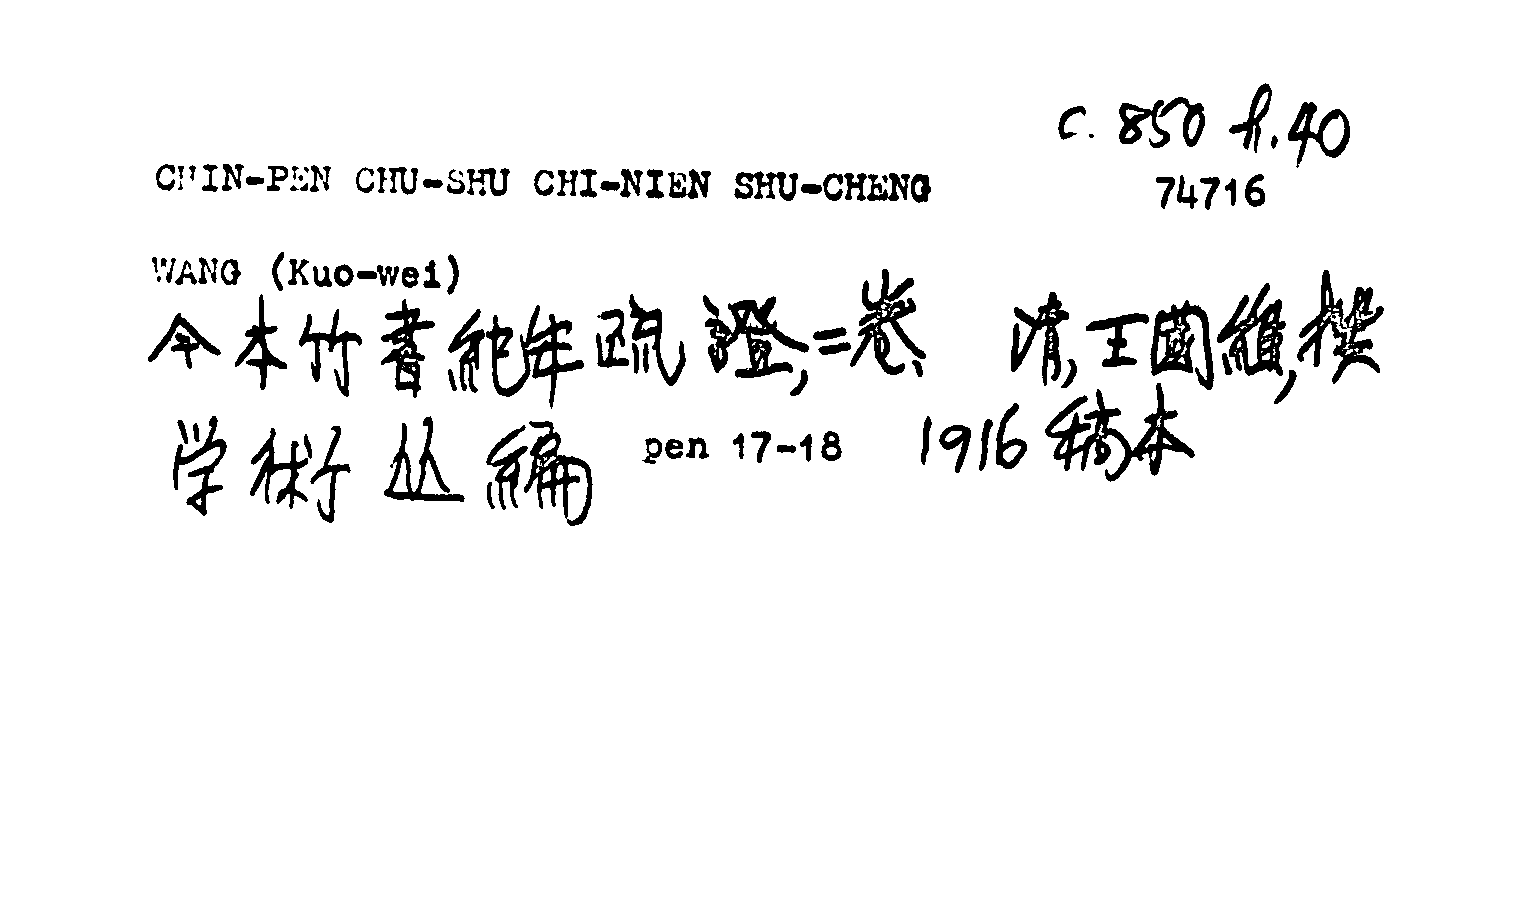 c. 850 h. 40
CHIN-PEN CHU-SHU CHI-NIEN SHU-CHENG 74716
WANG (Kuo-wei)
今本竹書紀年疏證,二卷 清,王國維,撰
学術丛編 pen 17-18 1916 稿本